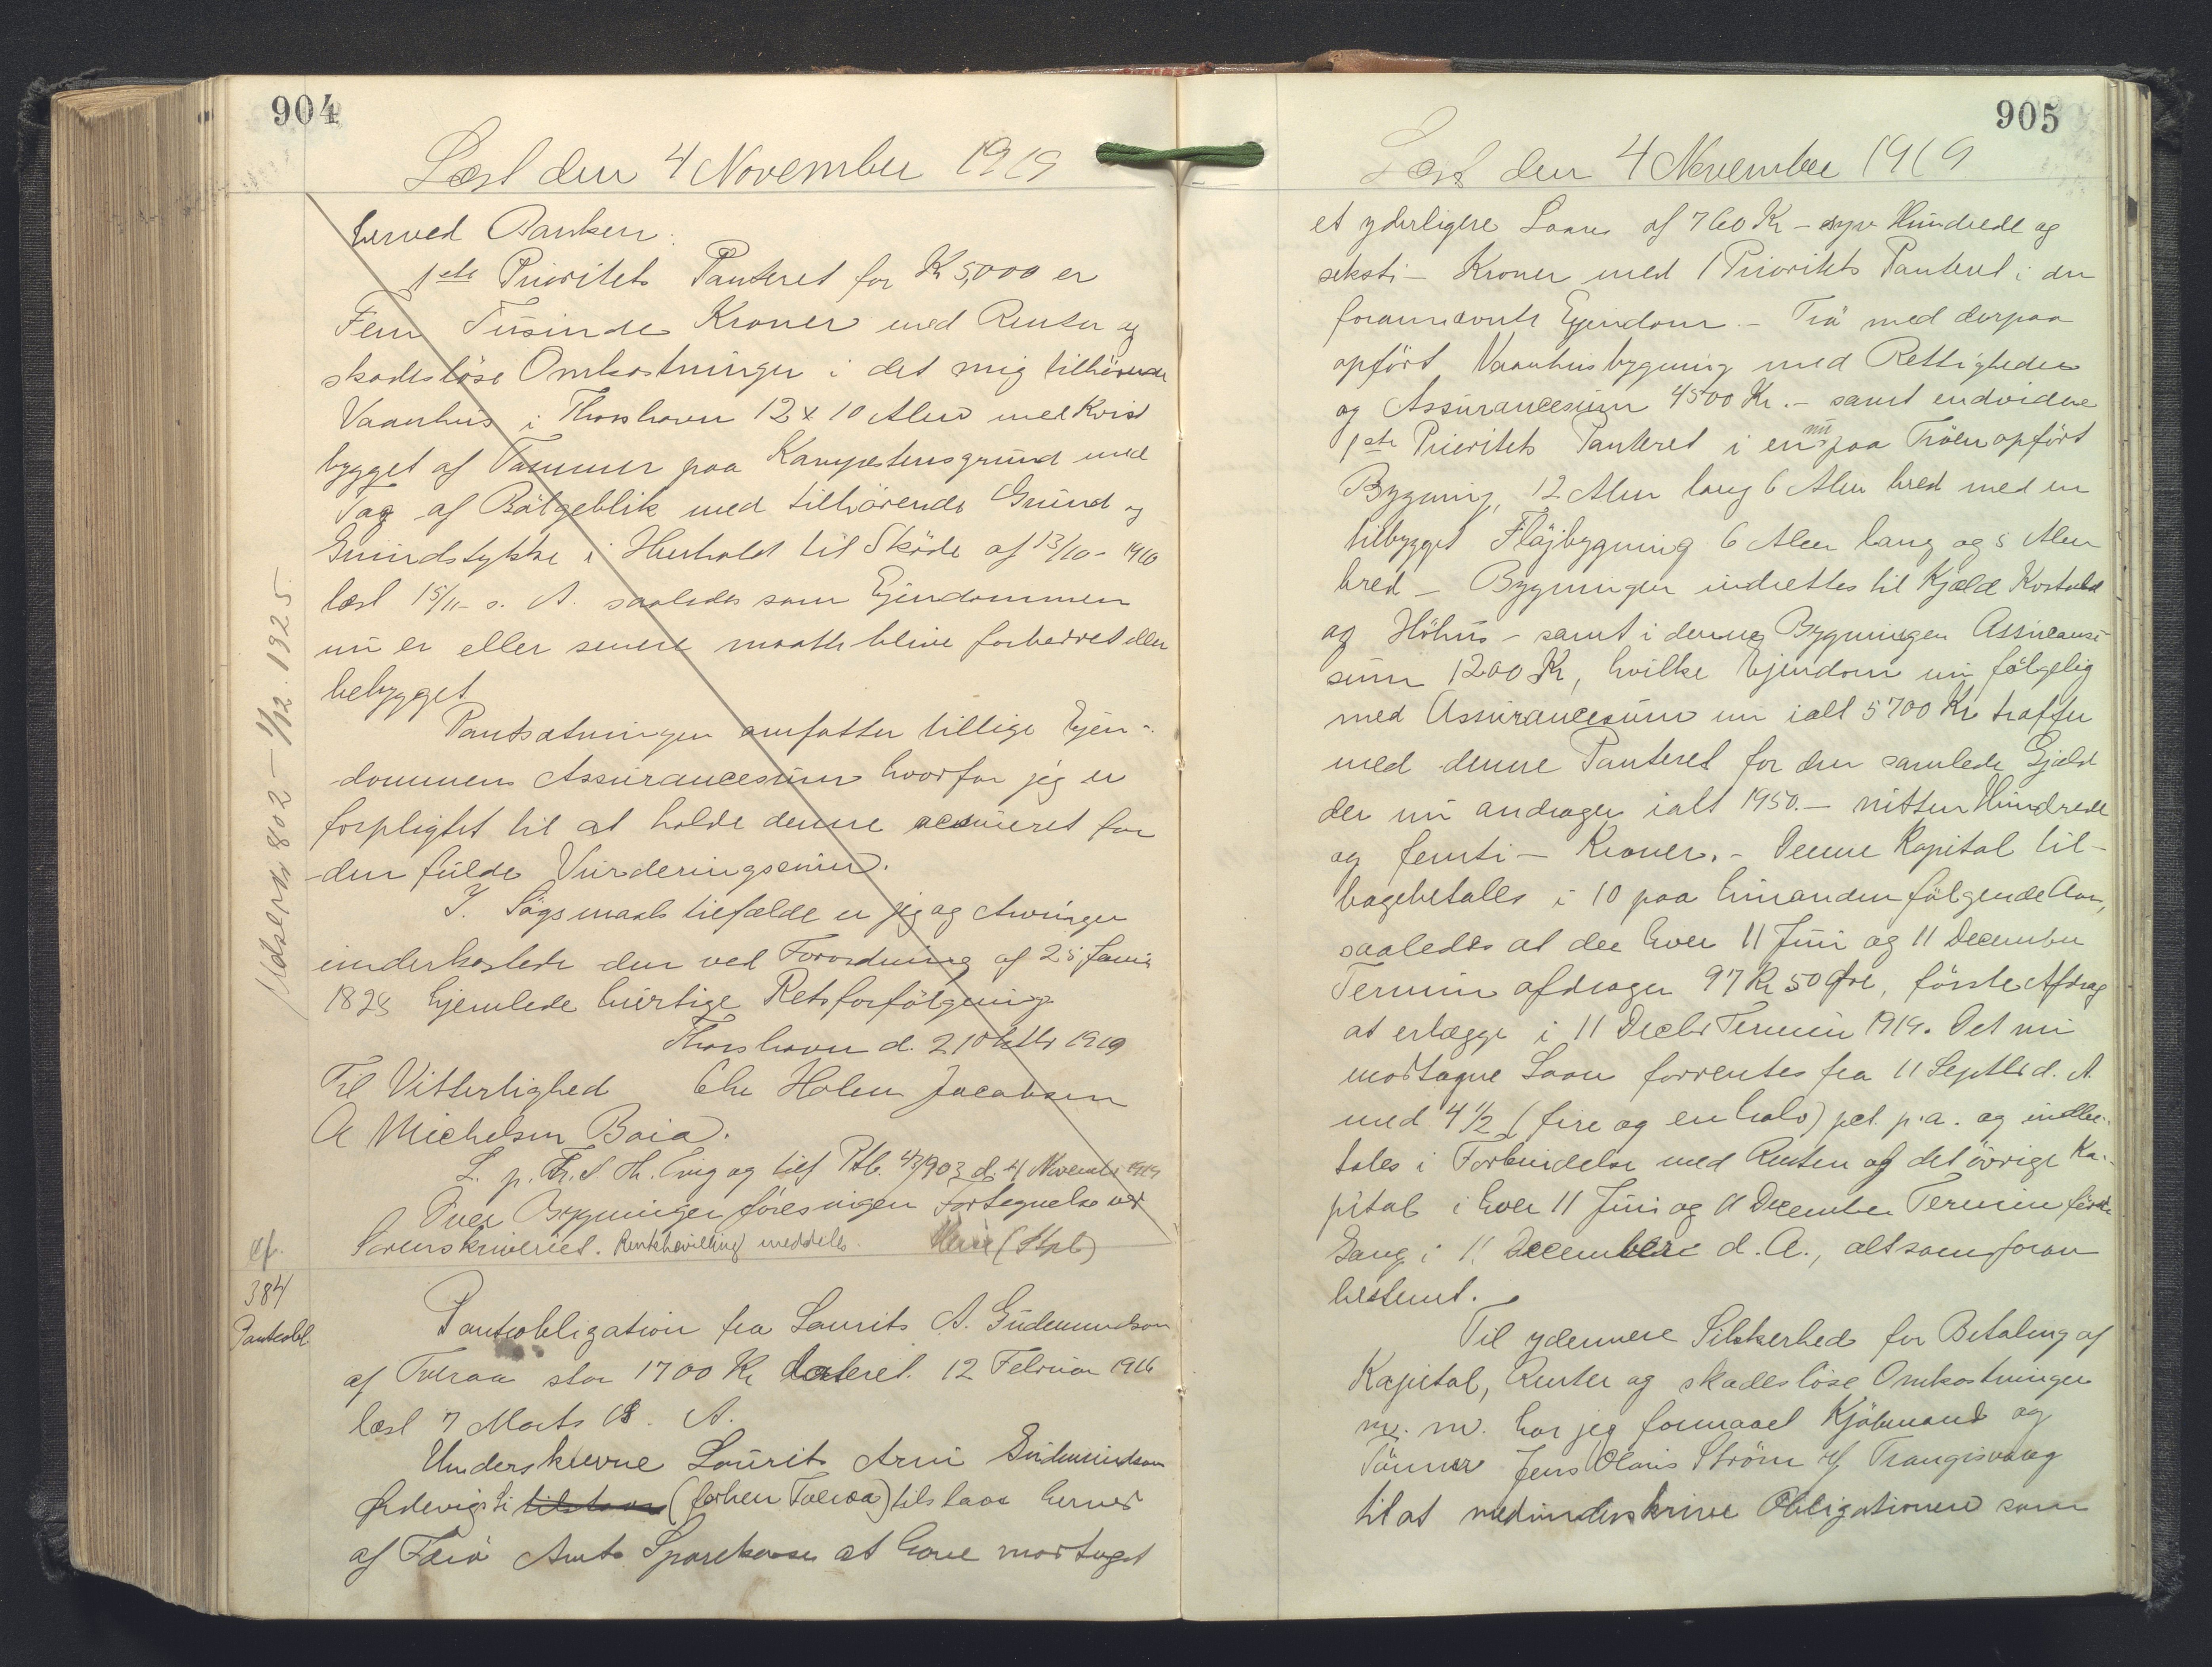 904
Læst den 4 November 1919
herved Banken.
1ste Prioritets Panteret for Kr 5,000 er
Fem Tusinde Kroner med Renter og
skadesløse Omkostninger i det mig tilhørende
Vaanhus i Thorshavn 12 x 10 Alen med Kvist
bygget af Tømmer paa Kampestensgrund med
Tag af Bølgeblik med tilhørende Grund og
Grundstykke i Henhold til Skøde af 13/10 - 1910
læst 15/11 - s. A. saaledes som Ejendommen
nu er eller senere maatte blive forbedret eller
bebygget
Pantsætningen omfatter tillige Ejen-
dommens Assurancesum hvorfor jeg er
forpligtet til at holde denne assureret for
den fulde Vurderingssum.
I Søgsmaals tilfælde er jeg og Arvinger
underkastede den ved Forordning af 25 Janr
1828 hjemlede hurtige Retsforfølgning
Thorshavn d. 21 Oktbr 1919
Til Vitterlighed Chr Holm Jacobsen
A Michelsen Baia.
L. p. Fr. S. Th. Ting og tilf Ptb. 4/903 d. 4 November 1919
Over Bygningen foresvigen Fortegnelse ved
Sorenskriveriet. meddeles. (Stpl)
Udslettet 802 - 1/12. 1925.
cf.
384
Panteobl.
Panteobligation fra Laurits A. Gudmundson
af Tveraa stor 1700 Kr dateret 12 Februar 1916
læst 7 Marts s. A.
Underskrevne Laurits Arni Gudmundson
Ørdevig (forhen Tveraa) tilstaar herved
af Færø Amts Sparekasse at have modtaget
905
Læst den 4 November 1919
et yderligere Laan af 760 Kr - syv Hundrede og
seksti - Kroner med 1 Prioritets Panteret i den
forannævnte Ejendom. - Trø med derpaa
opført Vaanhusbygning med Rettigheder
og Assurancesum 4500 Kr. - samt endvidere
1ste Prioritets Panteret i en nu paa Trøen opført
Bygning, 12 Alen lang 6 Alen bred med en
tilbygget Fløjbygning 6 Alen lang og 5 Alen
bred - Bygningen indrettes til Kjæld Kostald
og Höhus - samt i denne Bygningen Assurance-
sum 1200 Kr, hvilke Ejendom nu følgelig
med Assurancesum nu ialt 5700 Kr hæfter
med denne Panteret for den samlede Gjæld
der nu andrager ialt 1950. - nitten Hundrede
og femti - Kroner. - Denne Kapital til-
bagebetales i 10 paa hinanden følgende Aar,
saaledes at der hver 11 Juni og 11 December
Termin afdrages 97 Kr 50 Øre, første Afdrag
at erlægge i 11 Decbr Termin 1919. Det nu
modtagne Laan forrentes fra 11 Septbr d. A.
med 4 1/2 (fire og en halv) pct. p. a. og indbe-
tales i Forbindelse med Renten af det øvrige Ka-
pital i hver 11 Juni og 11 December Termin første
Gang i 11 December d. A., alt som foran
bestemt.
Til ydermere Sikkerhed for Betaling af
Kapital, Renter og skadesløse Omkostninger
m. m. har jeg formaaet Kjøbmand og
Tømrer Jens Olaus Strøm af Trangisvaag
til at medunderskrive Obligationen som